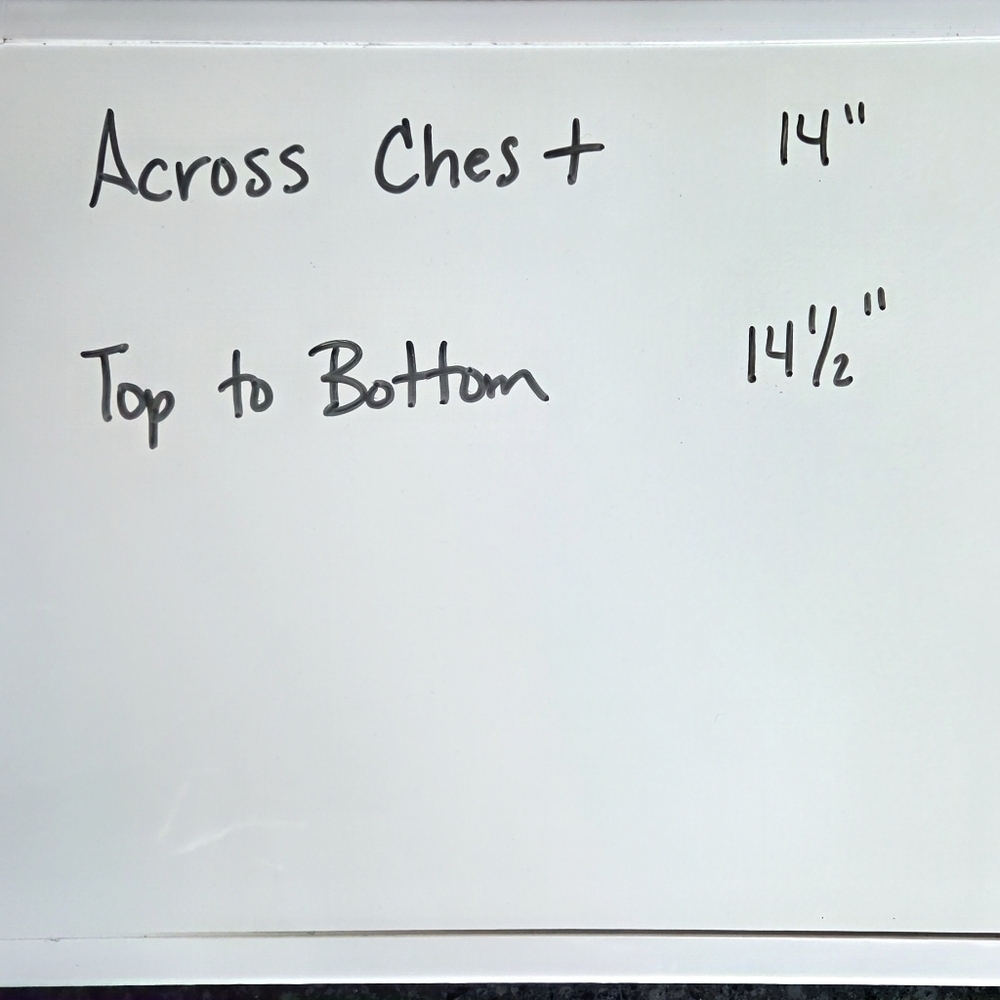 Across Chest 14"
Top to Bottom 14 1/2"